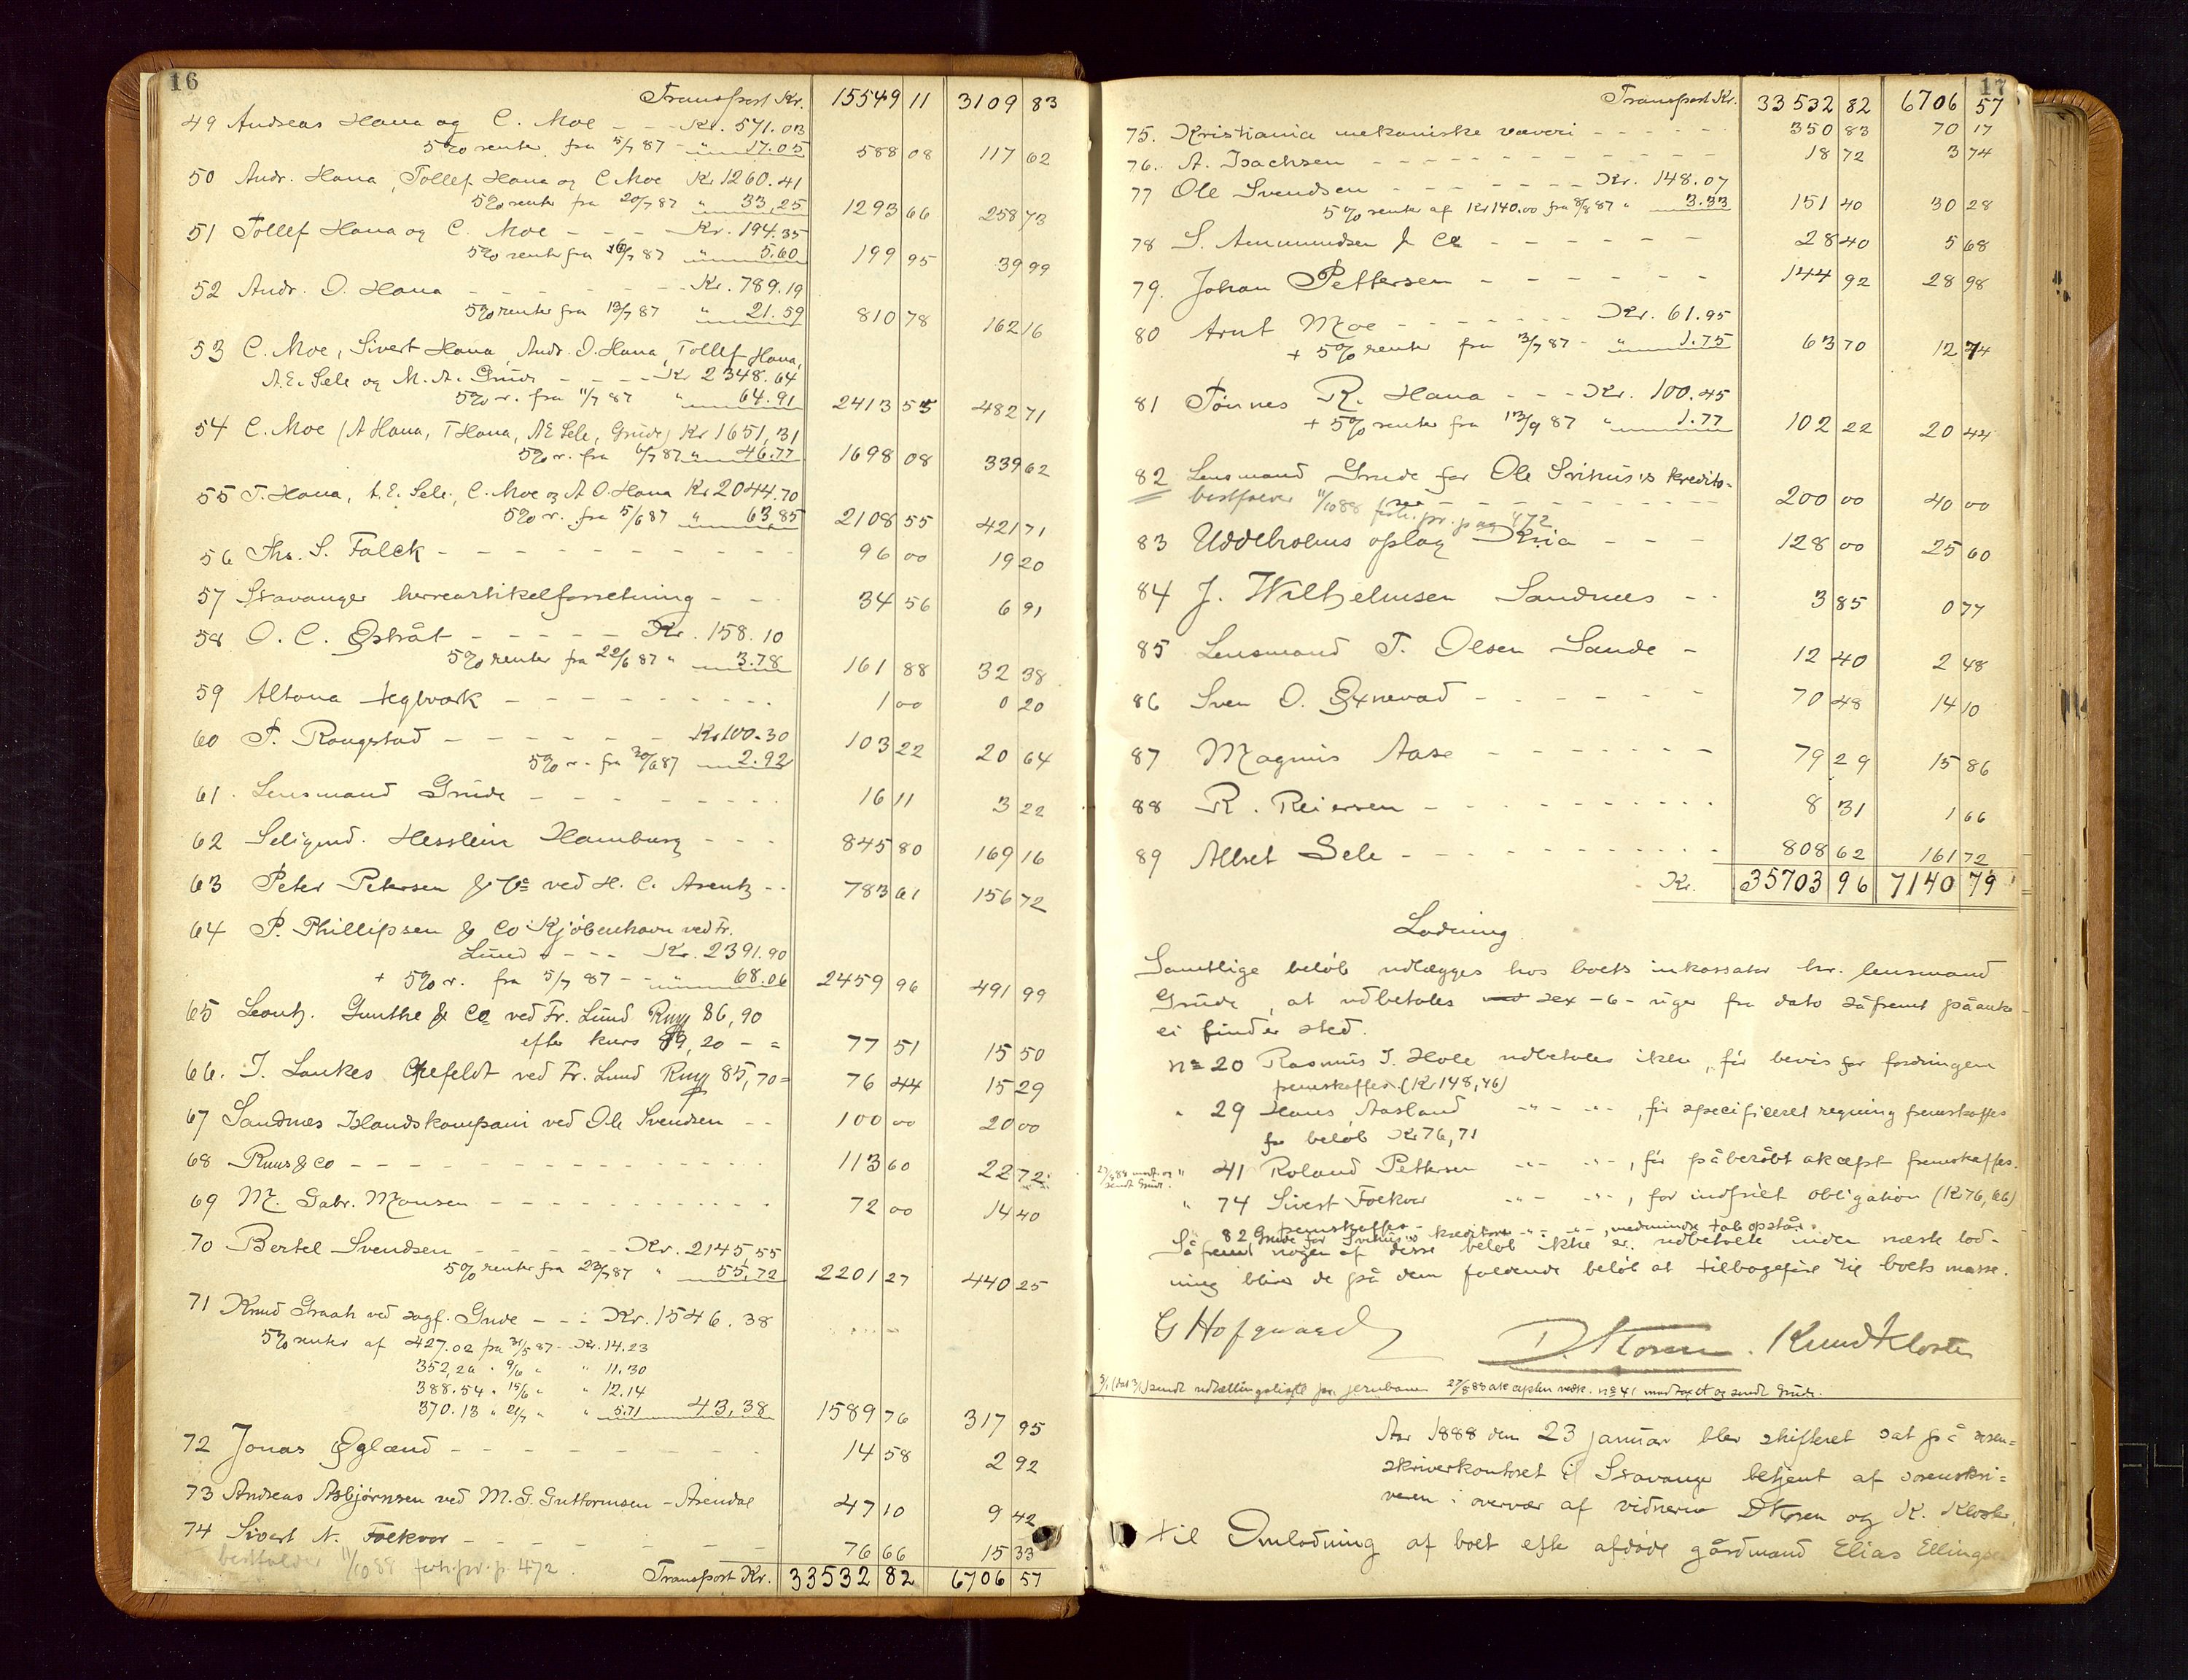 16
Transport Kr. 15549 11 3109 83
49 Andreas Hana og C. Moe - - Kr. 571.03
5% renter fra 5/7 87 - " 17.05 588 08 117 62
50 Andr. Hana, Tollef Hana og C Moe Kr 1260.41
5% renter fra 20/7 87 " 33,25 1293 66 258 73
51 Tollef Hana og C. Moe - - - - Kr. 194.35
5% renter fra 16/7 87 " 5.60 199 95 39 99
52 Andr. O. Hana - - - - - - Kr. 789.19
5% renter fra 13/7 87 " 21.59 810 78 162 16
53 C. Moe, Sivert Hana, Andr. O. Hana, Tollef Hana,
A.E. Sele og M. A. Grude - - - - Kr 2348.64
5% r. fra 11/7 87 " 64.91 2413 55 482 71
54 C. Moe (A Hana, T Hana, AE Sele, Grude) Kr 1651,31
5% r. fra 6/7 87 " 46.77 1698 08 339 62
55 T. Hana, A. E. Sele, C. Moe og A O. Hana Kr 2044.70
5% r. fra 5/6 87 " 63,85 2108 55 421 71
56 Ths. S. Falck - - - - - - - - - 96 00 19 20
57 Stavanger herreartikelforretning - - 34 56 6 91
58 O. C. Østråt - - - - - Kr. 158.10
5% renter fra 22/6 87 " 3.78 161 88 32 38
59 Altona teglværk - - - - - - - - 1 00 0 20
60 T. Rangstad - - - - - - Kr 100.30
5% r. fra 30/6 87 2.92 103 22 20 64
61. Lensmand Grude - - - - - - - - 16 11 3 22
62 Seligmd. Hesslein Hamburg - - - 845 80 169 16
63 Peter Petersen & Co ved H. C. Arentz - - 783 61 156 72
64 P. Phillipsen & Co Kjøbenhavn ved Fr.
Lund - - - Kr. 2391.90
+ 5% r. fra 5/7 87 - - " 68.06 2459 96 491 99
65 Leonh. Gunthe & Co ved Fr. Lund Rmy 86,90
efter kurs 89,20 - = 77 51 15 50
66. I. Lankes Crefeldt ved Fr. Lund Rmy 85,70 = 76 44 15 29
67 Sandnæs Handskompani ved Ole Svendsen - - 100 00 20 00
68 Ruus & Co - - - - - - - - - - 113 60 22 72
69 M. Gabr. Monsen - - - - - - - - - 72 00 14 40
70 Bertel Svendsen - - - - - - Kr. 2145,55
5% renter fra 23/7 87 " 55,72 2201 27 440 25
71 Knud Graah ved sagf. Grude - - - Kr. 1546.38
5% renter af 427.02 fra 31/5 87 - Kr. 14.23
352,26 " 9/6 " " 11.30
388.54 " 15/6 " " 12.14
370.13 " 21/7 " " 5.71 43,38 1589 76 317 95
72 Jonas Øglænd - - - - - - - - - 14 58 2 92
73 Andreas Asbjørnsen ved M. G. Guttormsen - Arendal 47 10 9 42
74 Sivert N. Folkvor - - - - - - - - - 76 66 15 33
bortfalder 11/10 88 forh.pr. p. 472.
Transport Kr. 33532 82 6706 57
17
Transport Kr. 33532 82 6706 57
75. Kristiania mekaniske væveri - - - - - 350 83 70 17
76. A. Isachsen - - - - - - - - - - 18 72 3 74
77 Ole Svendsen - - - - - - - Kr. 148.07
5% renter af Kr 140.00 fra 8/8 87 " 3.33 151 40 30 28
78 S. Ammundsen & Co - - - - - - 28 40 5 68
79. Johan Pettersen - - - - - - - 144 92 28 98
80 Arnt Moe - - - - - - - Kr. 61.95
+ 5% renter fra 13/7 87 - " 1.75 63 70 12 74
81 Tønnes R. Hana - - - Kr. 100.45
+ 5% renter fra 13/9 87 " 1.77 102 22 20 44
82 Lensmand Grude for Ole Svihus's kredito-
rer - - - - - - - - - 200 00 40 00
bortfalder 11/10 88 forh. pr. pag 472
83 Uddeholms oplag Kria - - - 128 00 25 60
84 J. Wilhelmsen Sandnes - - 3 85 0 77
85 Lensmand T. Olsen Sande - 12 40 2 48
86 Sven O. Øxnevad - - - - - - 70 48 14 10
87 Magnus Aase - - - - - - - 79 29 15 86
88 R. Reiersen - - - - - - - - - 8 31 1 66
89 Albret Sele - - - - - - - - - - 808 62 161 72
Kr. 35703 96 7140 79
Lodning
Samtlige beløb udlægges hos boets inkassator hr. lensmand
Grude, at udbetales sex - 6 - uger fra dato såfremt påanke
ei finder sted.
no 20 Rasmus I. Hole udbetales ikke, før bevis for fordringen
fremskaffes (Kr 148,46)
" 29 Hans Aasland -"- -"-, før specificeret regning fremskaffes
for beløb Kr 76,71
" 41 Roland Pettersen -"- -"-, før påberåbt akcept fremskaffes.
27/5 88 modt. og sendt Grude.
" 74 Sivert Folkvor -"- -"-, før indfriet obligation (Kr 76,66)
fremskaffes -
" 82 Grude for Svihus's kreditorer -"- -"-, medmindre tab opstår.
Såfremt nogen af disse beløb ikke er udbetalte inden næste lod-
ning bliver de på dem faldende beløb at tilbageføre til boets masse.
G Hofgaard D. Storm. Knud Kloster
sendt udlællingsliste pr. jernbane 27/5 88 akcepten vedk. no 41 modtaget og sendt Grude.
Aar 1888 den 23 januar blev skifteret sat på soren=
skriverkontoret i Stavanger betjent af sorenskri=
veren i overvær af vidnerne D Storm og K. Kloster,
til Omlodning af boet efter afdøde gårdmand Elias Ellingsen